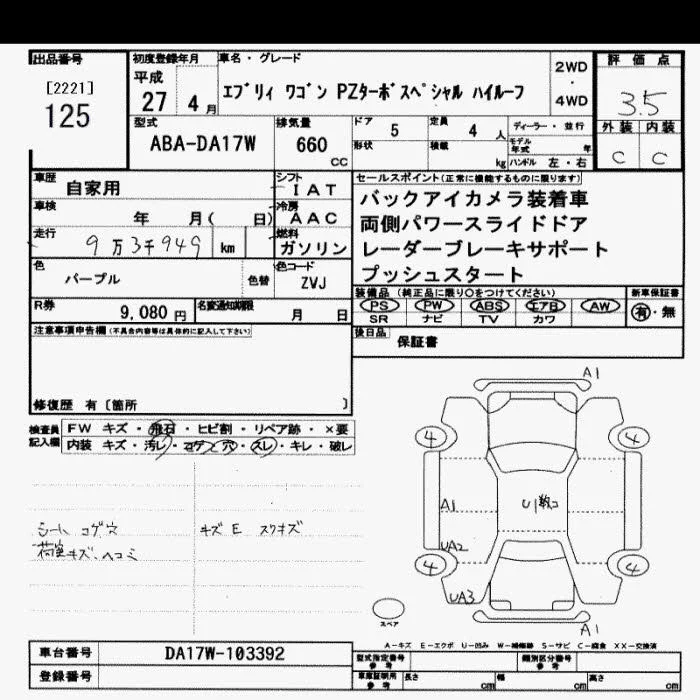 出品番号
[2221]
125
初度登録年月
平成
27 4月
車名・グレード
エブリィ ワゴン PZターボスペシャル ハイルーフ
2WD
・
4WD
評価点
3.5
外装 内装
C C
型式
ABA-DA17W
排気量
660
cc
ドア 5
定員 4 人
ディーラー・並行
形状
積載 kg
モデル年式 年
ハンドル 左・右
車歴 自家用
シフト IAT
車検 年 月( 日)
冷房 AAC
走行 9万3千949 km
燃料 ガソリン
色 パープル
色替
色コード ZVJ
R券 9,080円
名変通知期限 月 日
セールスポイント(正常に機能するものに限ります)
バックアイカメラ装着車
両側パワースライドドア
レーダーブレーキサポート
プッシュスタート
装備品(純正品に限り○をつけてください)
PS PW ABS エアB AW
SR ナビ TV カワ
新車保証書
有・無
後日品 保証書
注意事項申告欄(不具合内容等は具体的に記入して下さい)
修復歴 有〔箇所 〕
検査員記入欄
FW キズ・飛石・ヒビ割・リペア跡・×要
内装 キズ・汚レ・コゲ・穴・スレ・キレ・破レ
シート コゲ穴
キズ E スリキズ
荷室キズ、ヘコミ
A1
4 4
A1
U1数コ
UA2
4 4
UA3
A1
スペア
A-キズ E-エクボ U-凹み W-補修跡 S-サビ C-腐食 XX-交換済
車台番号 DA17W-103392
登録番号
型式指定番号 参考
類別区分番号 参考
車庫証明用 参考
長さ cm 幅 cm 高さ cm